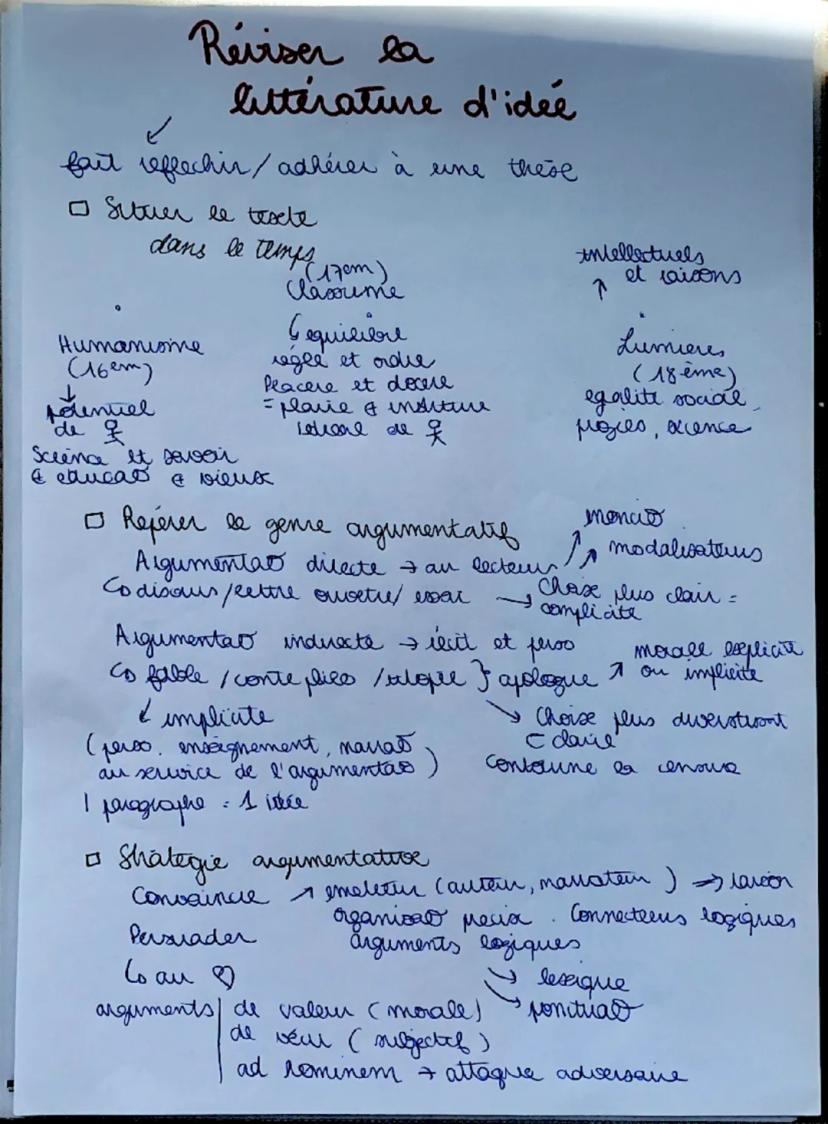 Réviser la
littérature d'idée
↙
fait refflechir / adhérer à une thèse
□ Situer le texte
dans le temps
(17em)
Classicisme
intellectuels
↑ et raisons
Humanisme
(16em)
↓
potentiel
de
Science et savoir
educat° vieux
↳ equilibre
règle et ordre
Placere et docere
= plaire et instruire
Lumieres
(18ème)
egalité social,
progrès, science
□ Repérer le genre argumentatif
Argumentat° directe → au lecteur
↗ ↗ modalisateurs
↳ discours / lettre ouverte / essai → Chose plus clair =
complicité
Argumentat° indirecte → récit et perso
↳ fable / conte philo / utopie } apologue ↗ morale explicite
ou implicite
↙ implicite
(perso. enseignement, narrat°
au service de l'argumentat°)
↘ Chose plus divertissant
claire
Contourne la censure
1 paragraphe = 1 idée
□ Stratégie argumentative
Convaincre ↗ emetteur (auteur, narrateur) ⇒ raison
organisat° précise. Connecteurs logiques
arguments logiques
Persuader
↳ au ♡
↘ lexique
↘ ponctuat°
arguments | de valeur (morale)
de vécu (subjectif)
ad hominem → attaque adversaire